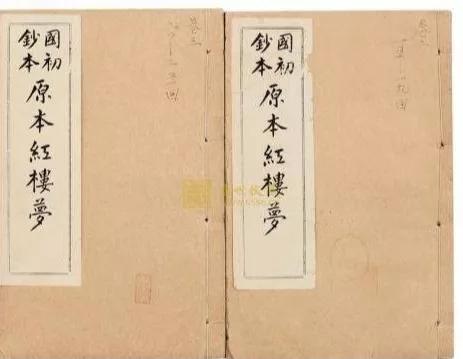 國初
鈔本
原本紅樓夢
國初
鈔本
原本紅樓夢